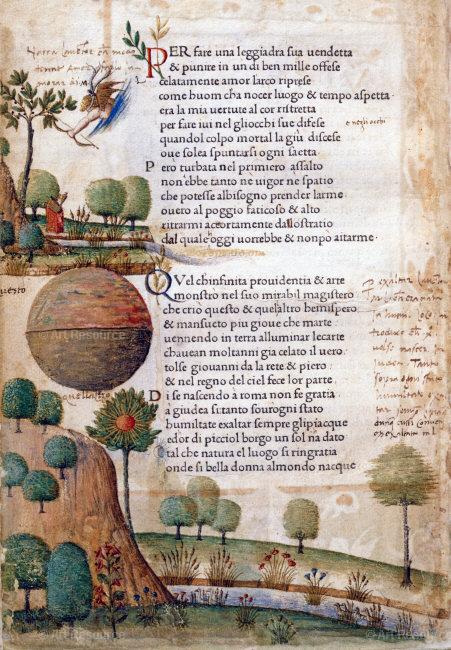 PER fare una leggiadra sua uendetta
& punire in un di ben mille offese
celatamente amor larco riprese
come huom cha nocer luogo & tempo aspetta·
era la mia uertute al cor ristretta
per fare iui nel gliocchi sue difese
e negli occhi
quandol colpo mortal la giu discese
oue solea spuntarsi ogni saetta·
Pero turbata nel primiero assalto
non'ebbe tanto ne uigor ne spatio
che potesse albisogno prender larme·
ouero al poggio faticoso & alto
ritrarmi accortamente dallo stratio
dal quale oggi uorrebbe & nonpo aitarme·
QVel chinfinita prouidentia & arte
monstro nel suo mirabil magistero
che crio questo & quelaltro hemispero
& mansueto piu gioue che marte·
uenendo in terra alluminar lecarte
chauean moltanni gia celato il uero·
tolse giouanni da la rete & piero·
& nel regno del ciel fece lor parte·
Di se nascendo à roma non fe gratia
a giudea si·tanto sourogni stato
humiltate exaltar sempre glipiacque
edor di picciol borgo un sol na dato
tal che natura el luogo si ringratia
onde si bella donna almondo nacque
questo
quellaltro
ArtResource